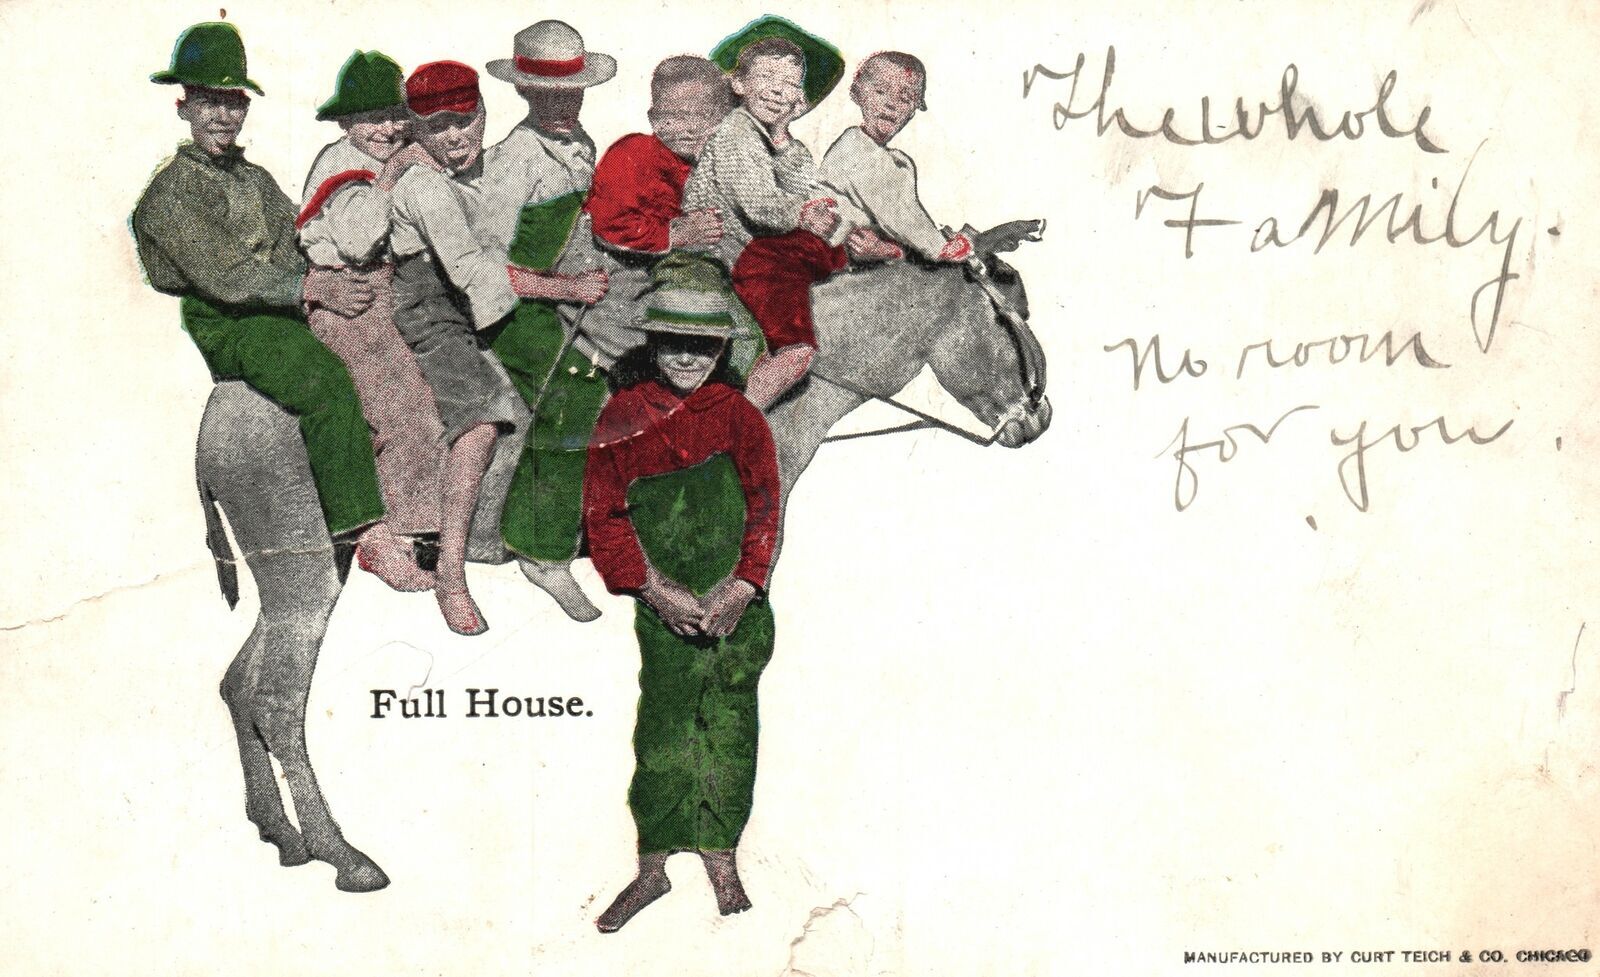 The whole
Family.
No room
for you.
Full House.
MANUFACTURED BY CURT TEICH & CO. CHICAGO